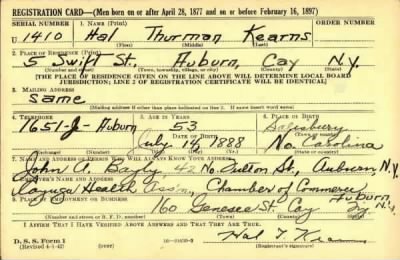 REGISTRATION CARD—(Men born on or after April 28, 1877 and on or before February 16, 1897)
SERIAL NUMBER 1. NAME (Print)
U 1410 Hal Thurman Kearns
(First) (Middle) (Last)
2. PLACE OF RESIDENCE (Print)
5 Swift St. Auburn, Cay N.Y.
(Number and street) (Town, township, village, or city) (County) (State)
[THE PLACE OF RESIDENCE GIVEN ON THE LINE ABOVE WILL DETERMINE LOCAL BOARD
JURISDICTION; LINE 2 OF REGISTRATION CERTIFICATE WILL BE IDENTICAL]
3. MAILING ADDRESS
Same
[Mailing address if other than place indicated on line 2. If same insert word same]
4. TELEPHONE 5. AGE IN YEARS 6. PLACE OF BIRTH
1651-J- Auburn 53 Salisbury
DATE OF BIRTH
July 14, 1888 No. Carolina
(Exchange) (Number) (Mo.) (Day) (Yr.) (State or country)
7. NAME AND ADDRESS OF PERSON WHO WILL ALWAYS KNOW YOUR ADDRESS
John A. 42 No. Fulton St., Auburn, N.Y.
8. EMPLOYER'S NAME AND ADDRESS
Cayuga Health Ass'n, Chamber of Commerce
9. PLACE OF EMPLOYMENT OR BUSINESS
160 Genesee St. Auburn, Cay N.Y.
(Number and street or R. F. D. number) (Town) (County) (State)
I AFFIRM THAT I HAVE VERIFIED ABOVE ANSWERS AND THAT THEY ARE TRUE.
D. S. S. Form 1
(Revised 4-1-42)
Hal T Kearns
(Registrant's signature)